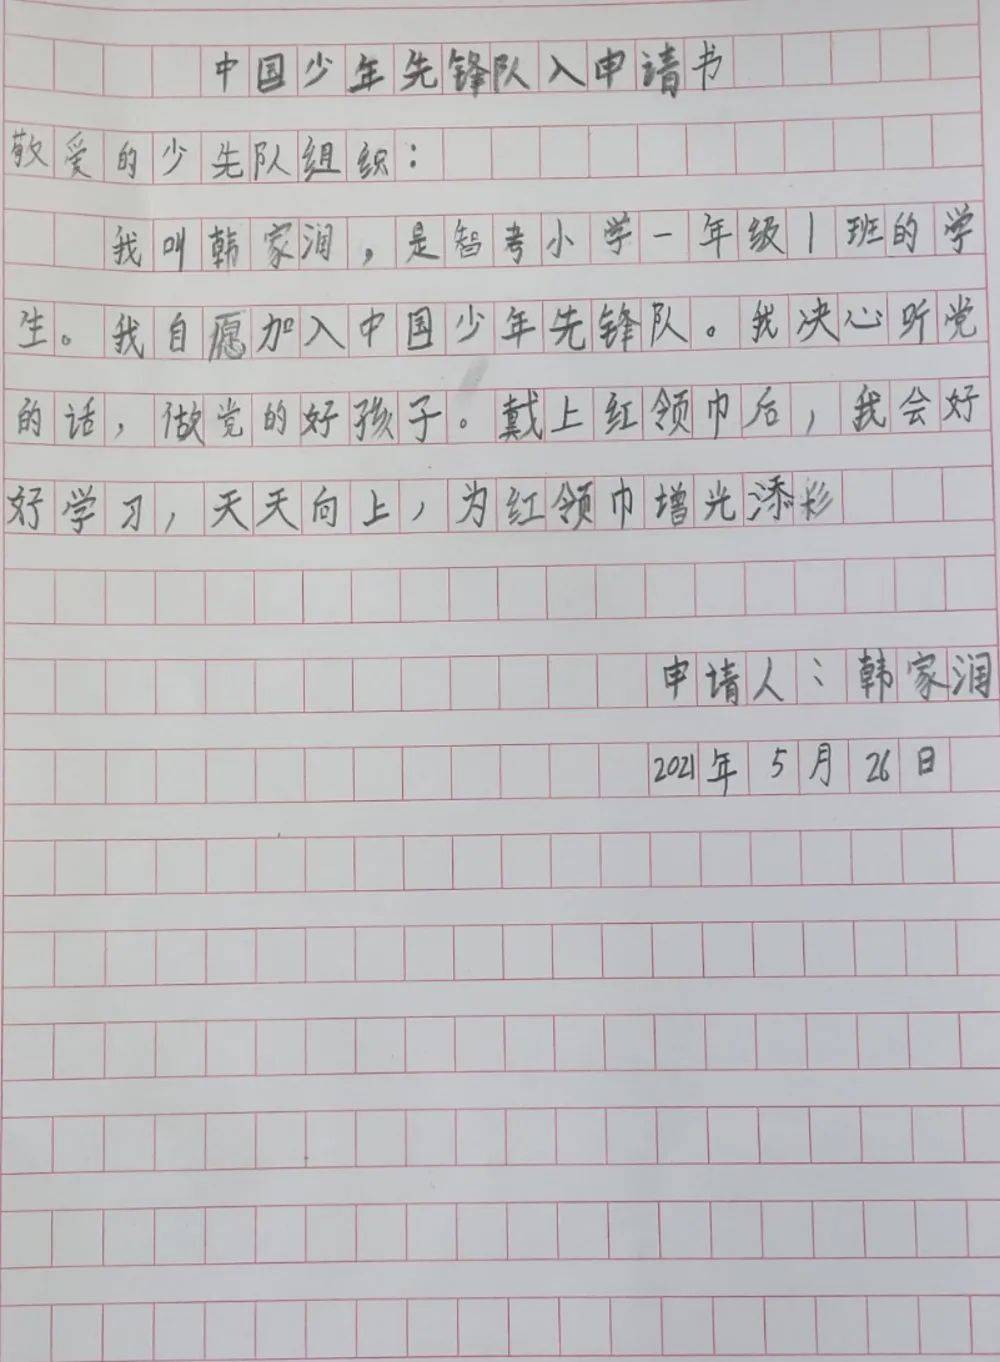 中国少年先锋队入申请书
敬爱的少先队组织：
我叫韩家润，是智考小学一年级1班的学
生。我自愿加入中国少年先锋队。我决心听党
的话，做党的好孩子。戴上红领巾后，我会好
好学习，天天向上，为红领巾增光添彩
申请人：韩家润
2021年5月26日